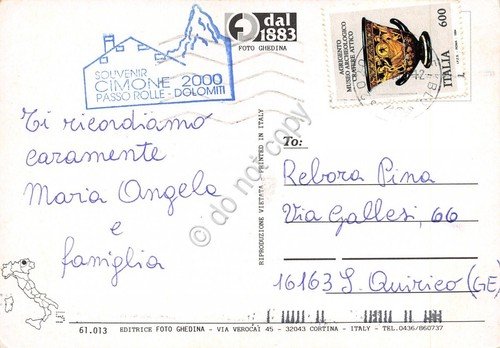 SOUVENIR
CIMONE 2000
PASSO ROLLE - DOLOMITI
F dal
1883
FOTO GHEDINA
AGRIGENTO
MUSEO ARCHEOLOGICO
CRATERE ATTICO
ITALIA 600
Ti ricordiamo
caramente
Maria Angela
e
famiglia
RIPRODUZIONE VIETATA - PRINTED IN ITALY
© do not copy
To:
Rebora Pina
Via Gallesi, 66
16163 S. Quirico (GE)
61.013 EDITRICE FOTO GHEDINA - VIA VEROCAI 45 - 32043 CORTINA - ITALY - TEL. 0436/860737